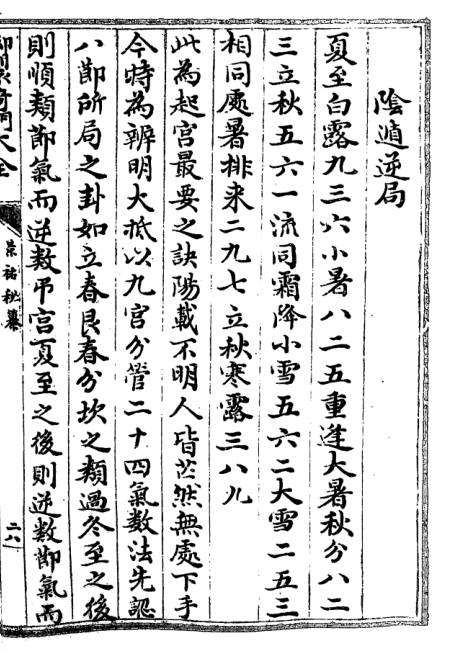 陰遁逆局
夏至白露九三六小暑八二五重逢大暑秋分八二
三立秋五六一流同霜降小雪五六二大雪二五三
相同處暑排来二九七立秋寒露三八九
此為起宫最要之訣陽載不明人皆茫然無處下手
今特為辨明大抵以九宫分管二十四氣數法先認
八節所局之卦如立春艮春分坎之類過冬至之後
則順類節氣而逆数弔宫夏至之後則逆数節氣而
奇門大全
景祐秘纂
二八